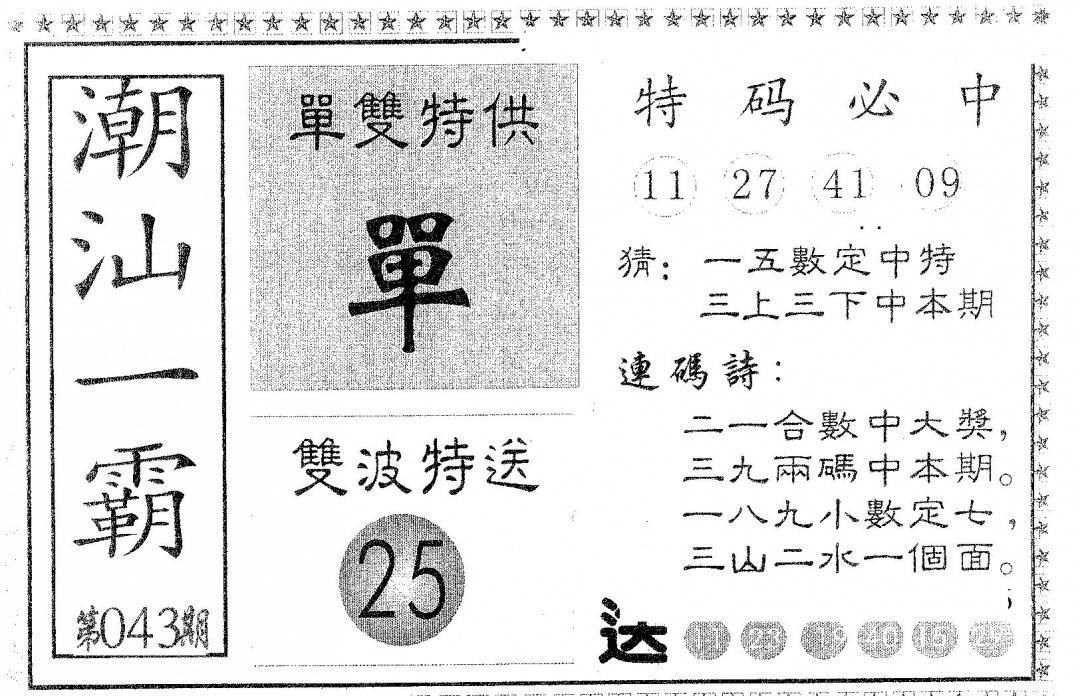 潮汕一霸
第043期
單雙特供
單
雙波特送
25
特码必中
11 27 41 09
猜：一五數定中特
三上三下中本期
連碼詩：
二一合數中大獎，
三九兩碼中本期。
一八九小數定七，
三山二水一個面。
11 23 19 40 15